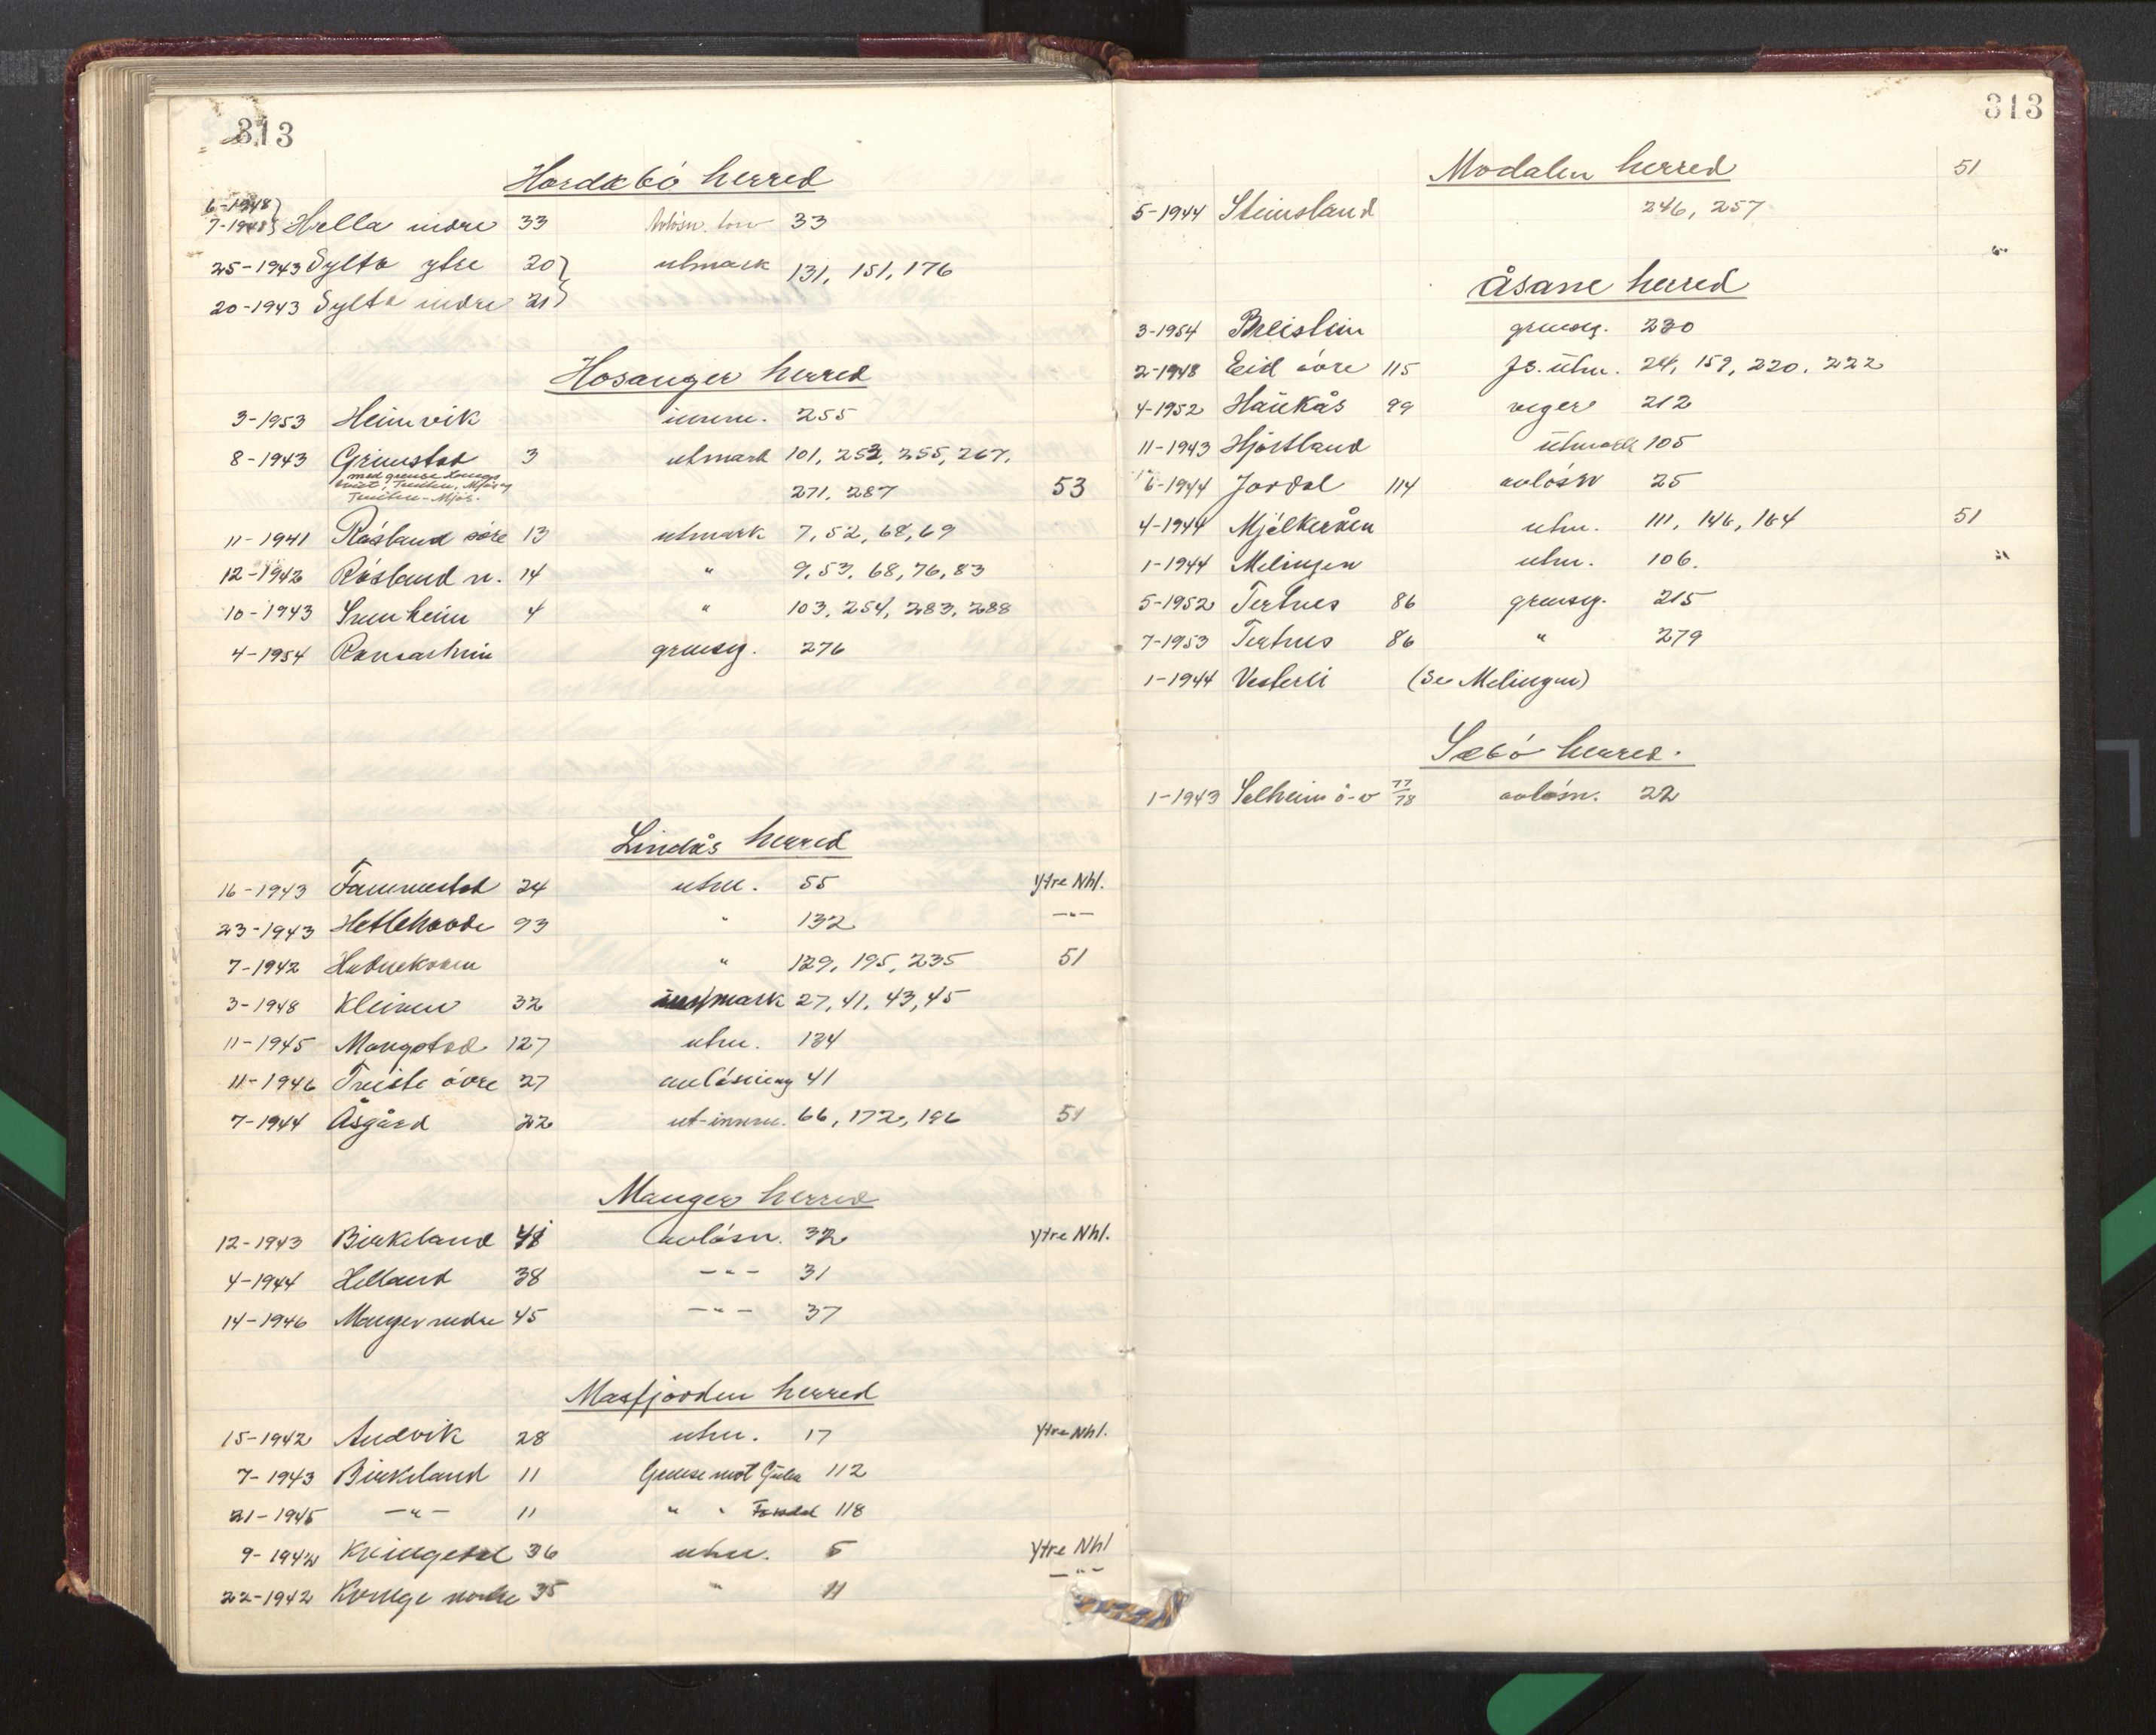 313
Hordabö herred
6-1948}
7-1948} Hella indre 33 33
25-1943 Sylta ytre 20} utmark 131, 151, 176
20-1943 Sylta indre 21}
Hosanger herred
3-1953 Heimvik innm. 255
8-1943 Grimstad 3 utmark 101, 252, 255, 267,
med grense
271, 287 53
11-1941 Röslund söre 13 utmark 7, 52, 68, 69
12-1942 Röslund n. 14 " 9, 53, 68, 76, 83
10-1943 4 " 103, 254, 283, 288
4-1954 grenseg. 276
Lindås herred
16-1943 Fammestad 24 utm. 55 Ytre Nhl.
23-1943 93 " 132 -"-
7-1942 " 129, 195, 235 51
3-1948 Kleiven 32 mark 27, 41, 43, 45
11-1945 Mongstad 127 utm. 134
11-1946 Tveite övre 27 avlösning 41
7-1944 Åsgård 22 ut-innm. 66, 172, 196 51
Manger herred
12-1943 Birkeland avlösn. 32 Ytre Nhl.
4-1944 Helland 38 -"- 31
14-1946 Manger nedre 45 -"- 37
Masfjorden herred
15-1942 Andvik 28 utm. 17 Ytre Nhl.
7-1943 Birkeland 11 Grense mot 112
21-1945 -"- 11 " " 118
9-1942 Kvingedal 36 utm. 5 Ytre Nhl
22-1942 Kvinge nordre 35 " 11 -"-
313
Modalen herred 51
5-1944 Steinsland 246, 257
"
Åsane herred
3-1954 Breistein grenseg. 230
2-1948 Eid övre 115 Js. utm. 24, 159, 220, 222
4-1952 Haukås 99 veger 212
11-1943 Hjortland utmark 105
6-1944 Jordal 114 avlösn 25
4-1944 Mjelkeråen utm. 111, 146, 164 51
1-1944 Melingen utm. 106. "
5-1952 Tertnes 86 grenseg. 215
7-1953 Tertnes 86 " 279
1-1944 Vesterli (Se Melingen)
Sæbö herred.
1-1943 Selheim ö-v 77/78 avlösn. 22